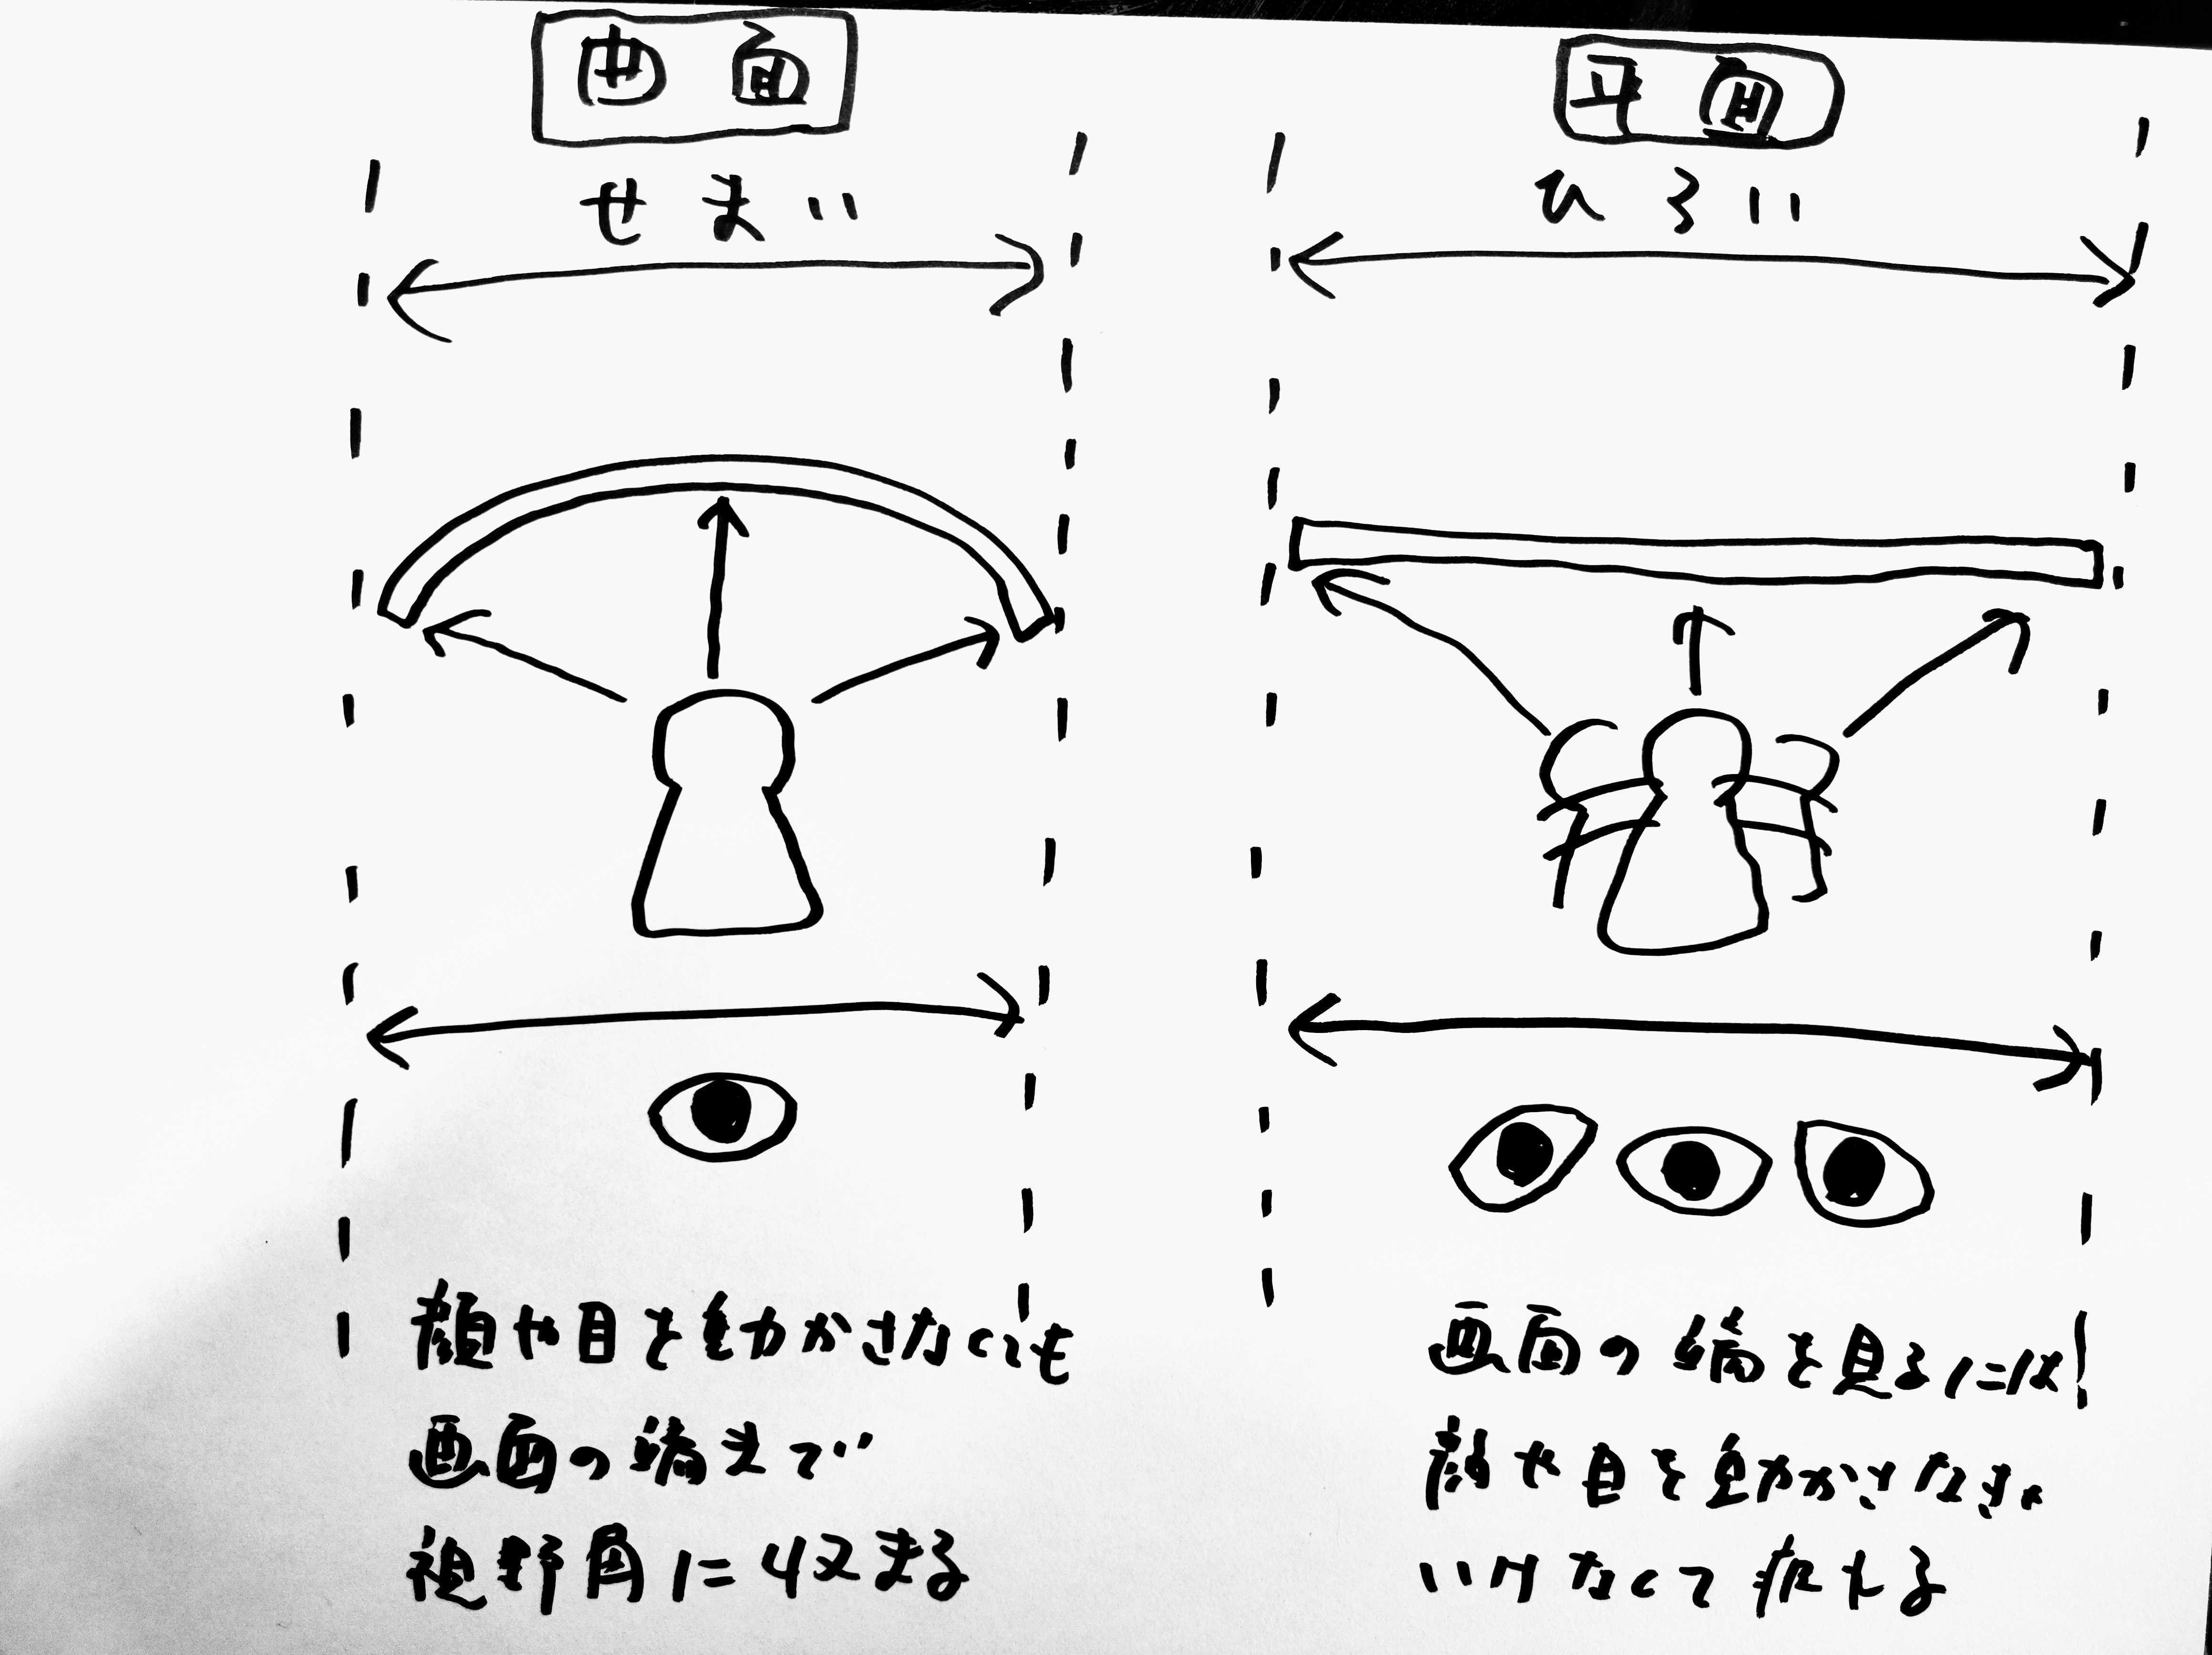 曲面
せまい
顔や目を動かさなくても
画面の端まで
視野角に収まる
平面
ひろい
画面の端を見るには
顔や目を動かさなきゃ
いけなくて疲れる